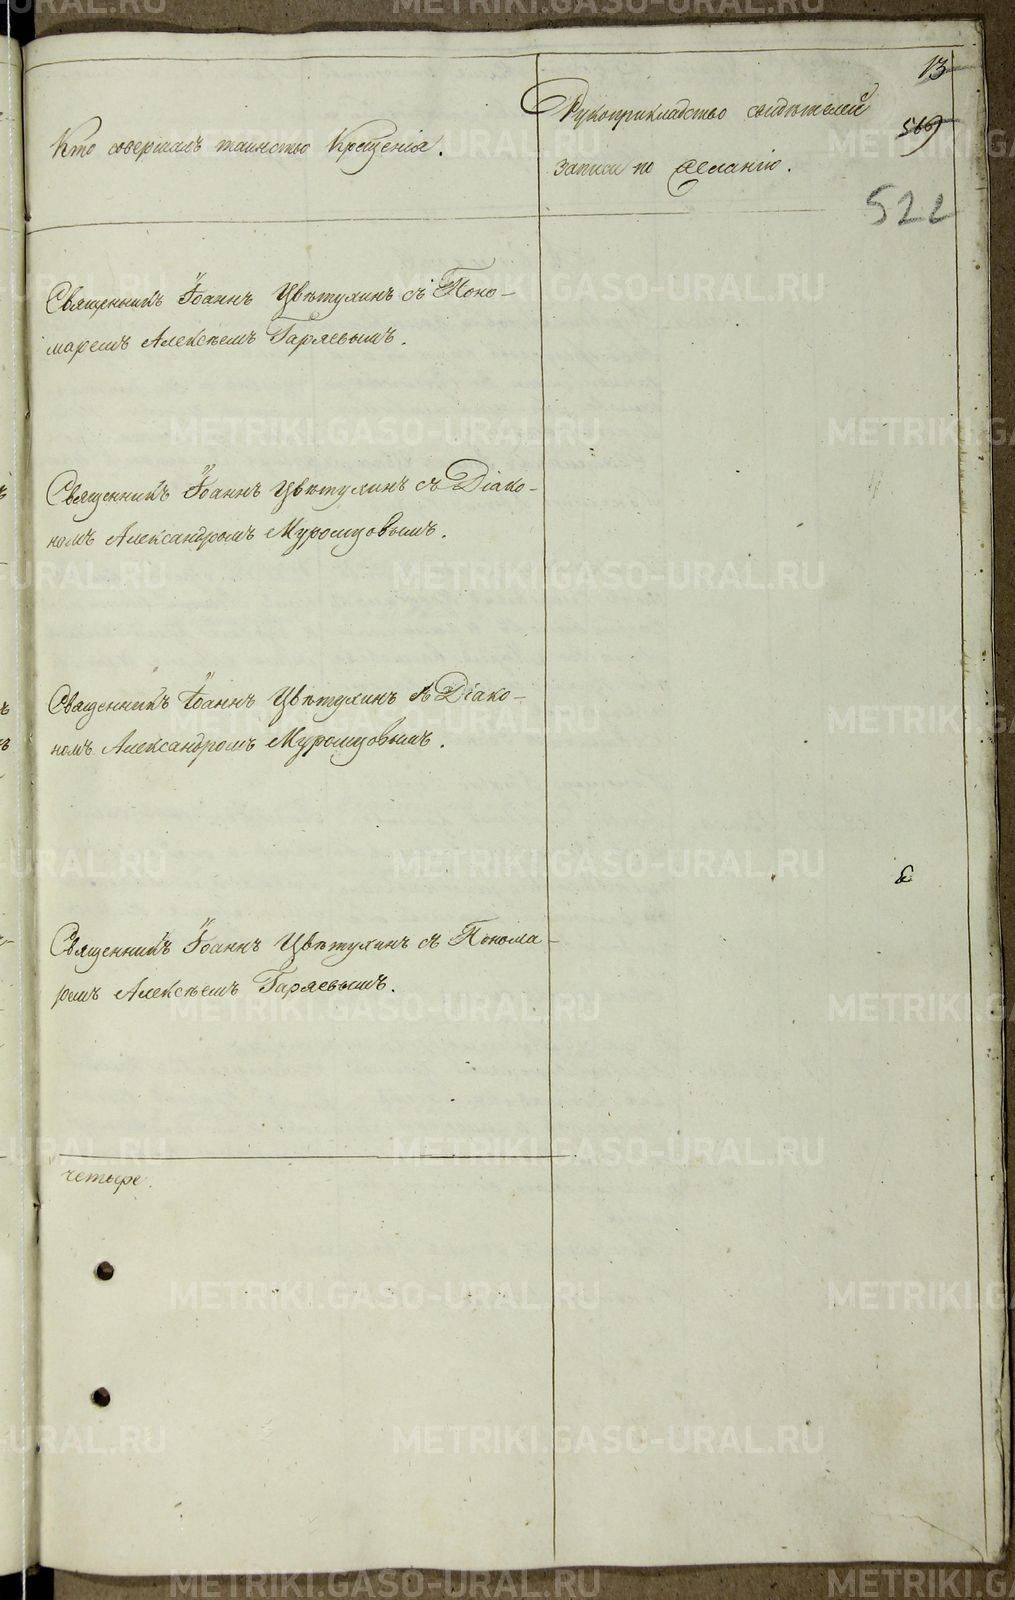 13
Кто совершалъ таинство Крещенія.
Рукоприкладство свидѣтелей
записи по желанію.
569
522
Священникъ Іоаннъ Цвѣтухинъ съ Поно-
маремъ Алексѣемъ Гаряевымъ.
Священникъ Іоаннъ Цвѣтухинъ съ Діако-
номъ Александромъ Муромцовымъ.
Священникъ Іоаннъ Цвѣтухинъ съ Діако-
номъ Александромъ Муромцовымъ.
Священникъ Іоаннъ Цвѣтухинъ съ Понома-
ремъ Алексѣемъ Гаряевымъ.
четыре.
METRIKI.GASO-URAL.RU